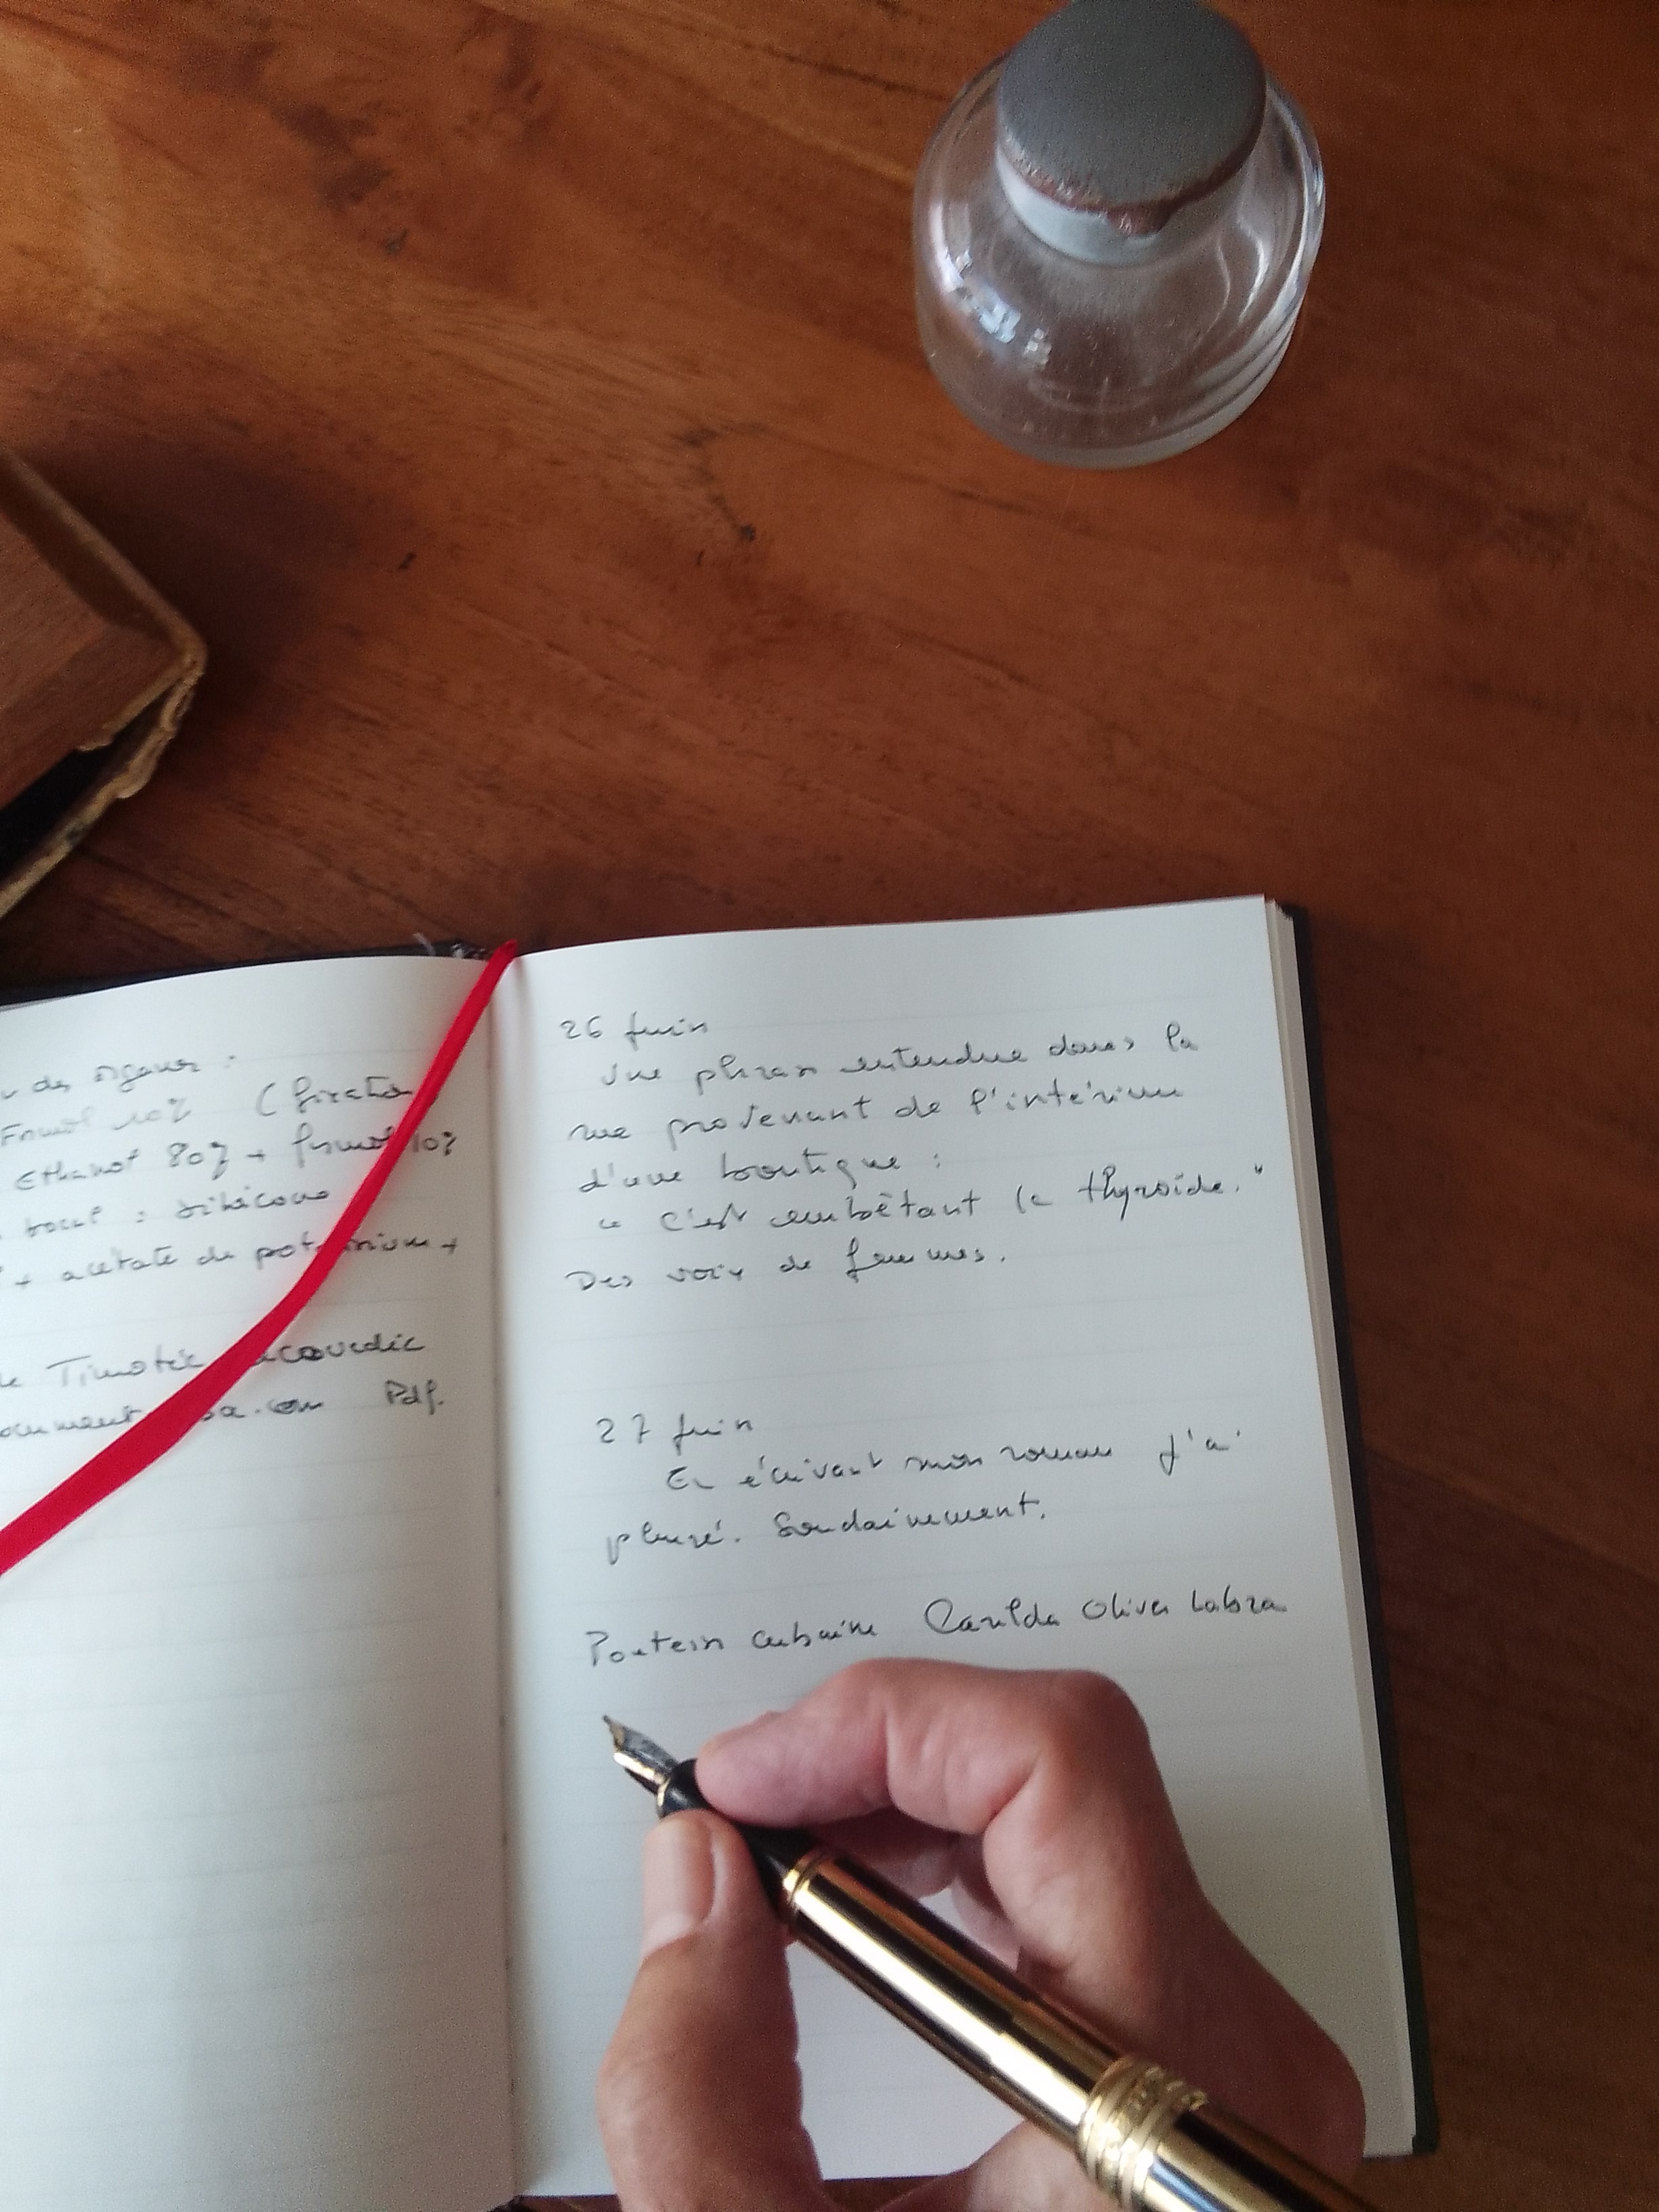 des organes :
Formol 10% (fixation
Ethanol 80% + formol 10%
bocal : silicone
+ acétate de potassium +
de Timotée
Pdf.
26 juin
Une phrase entendue dans la
rue provenant de l'intérieur
d'une boutique :
" C'est embêtant la thyroïde. "
Des voix de femmes.
27 juin
En écrivant mon roman j'ai
pleuré. Soudainement.
cubaine Carilda Oliver Labra